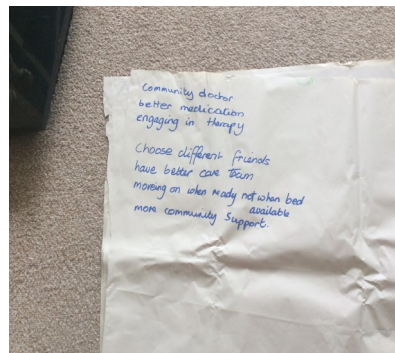 Community doctor
better medication
engaging in therapy
Choose different friends
have better care team
moving on when ready not when bed
available
more community support.